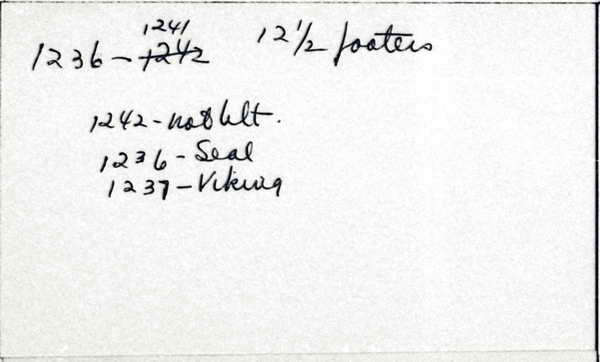 1241
1236 - 1242 12 1/2 footers
1242 - not blt.
1236 - Seal
1237 - Viking